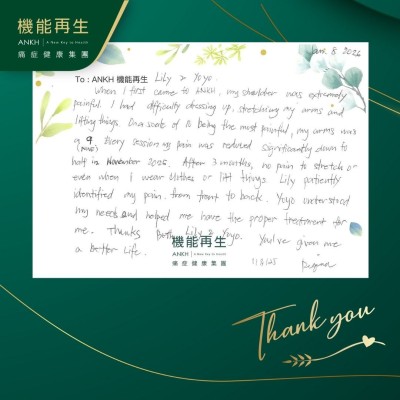 機能再生
ANKH | A New Key to Health
痛症健康集團
Jan. 8 2026
To : ANKH 機能再生 Lily & Yoyo.
When I first came to ANKH, my shoulder was extremely
painful. I had difficulty dressing up, stretching my arms and
lifting things. On a scale of 10 being the most painful, my arms was
a 9. Every session my pain was reduced significantly down to
half in November 2025. After 3 months, no pain to stretch or
even when I wear clothes or lift things. Lily patiently
identified my pain from front to back. Yoyo understood
my needs and helped me have the proper treatment for
me. Thanks Both Lily & Yoyo. You've given me
a better life.
機能再生
ANKH | A New Key to Health
痛症健康集團
Thank you